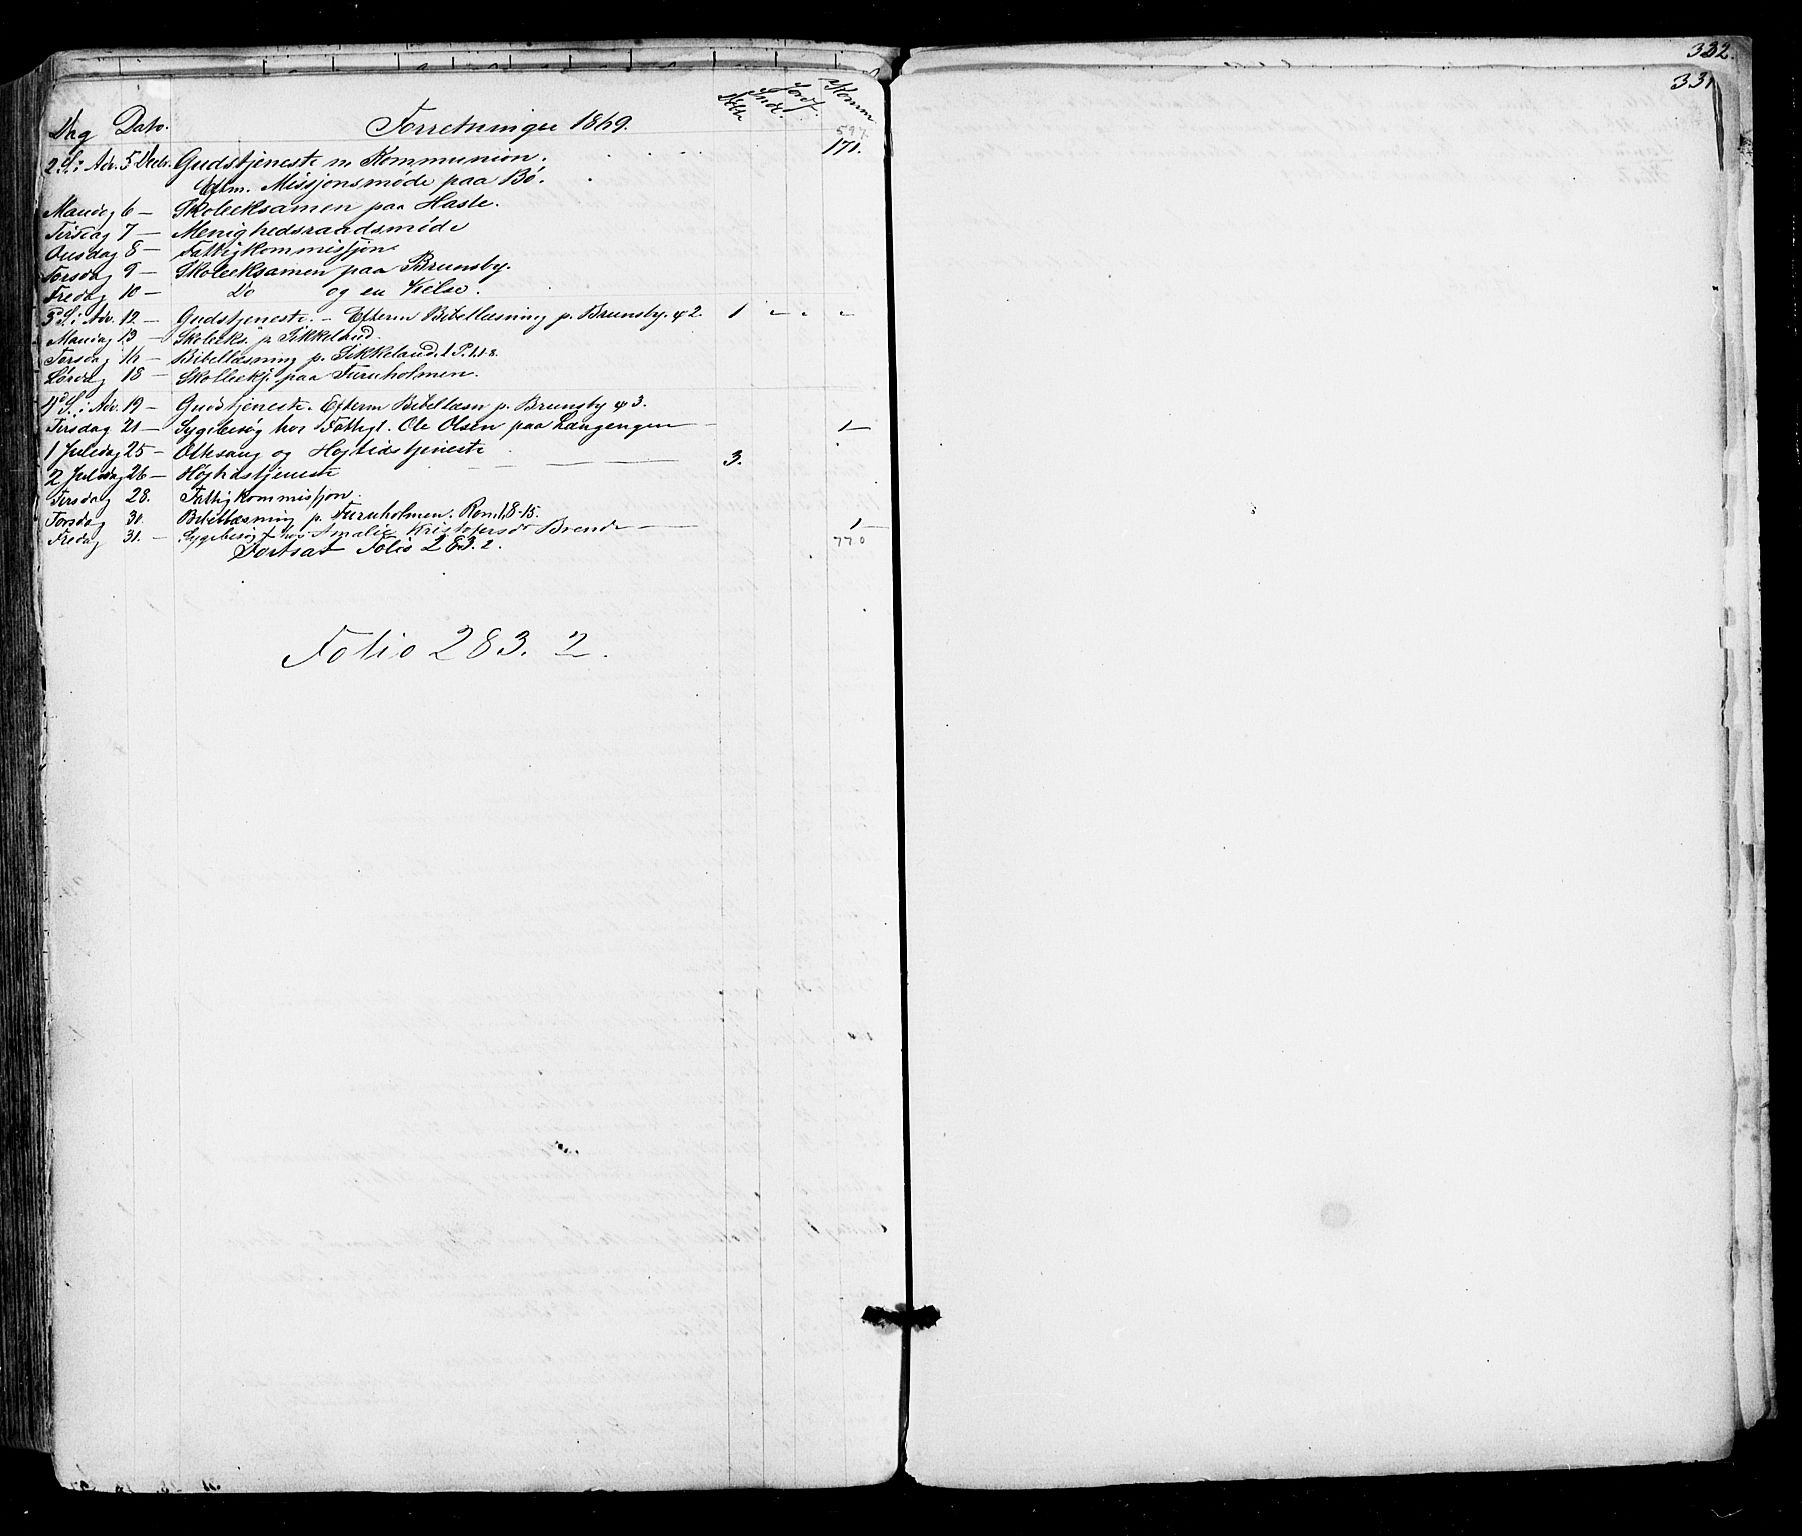 332.
331
Dag Dato. Forretninger 1869. Dåb Indl. Jordf. Komm
597.
2 S. i Adv. 5 Decbr. Gudstjeneste m Kommunion. 171.
Eftm. Missjonsmøde paa Bø.
Mandag 6 — Skoleeksamen paa Hasle.
Tirsdag 7 — Menighedsraadsmøde
Onsdag 8 — Fattigkommissjon
Torsdag 9 — Skoleeksamen paa Brunsby.
Fredag 10 — Do og en Vielse.
3 S. i Adv. 12 — Gudstjeneste. — Efterm Bibellæsning p. Brunsby. 42. 1 - - -
Mandag 13 — Skoleeks. p Sikkeland.
Torsdag 16 — Bibellæsning p. Sikkeland. 1 P. 1. 1-8.
Lørdag 18 — Skoleeks. paa Furuholmen.
4d S. i Adv. 19 — Gudstjeneste. Efterm Bibellæsn p. Brunsby 43.
Tirsdag 21 — Sygebesøg hos Fattigl. Ole Olsen paa Langengen — 1 —
1 Juledag 25 — Ottesang og Højtidstjeneste
2 Juledag 26 — Højtidstjeneste — — — 3.
Tirsdag 28. Fattigkommissjon.
Torsdag 30. Bibellæsning p. Furuholmen. Rom. 1. 8-15.
Fredag 31. — Sygebesøg hos Amalie Kristofersdr Brende — 1 —
Fortsat Folio 283. 2. 770
Folio 283. 2.